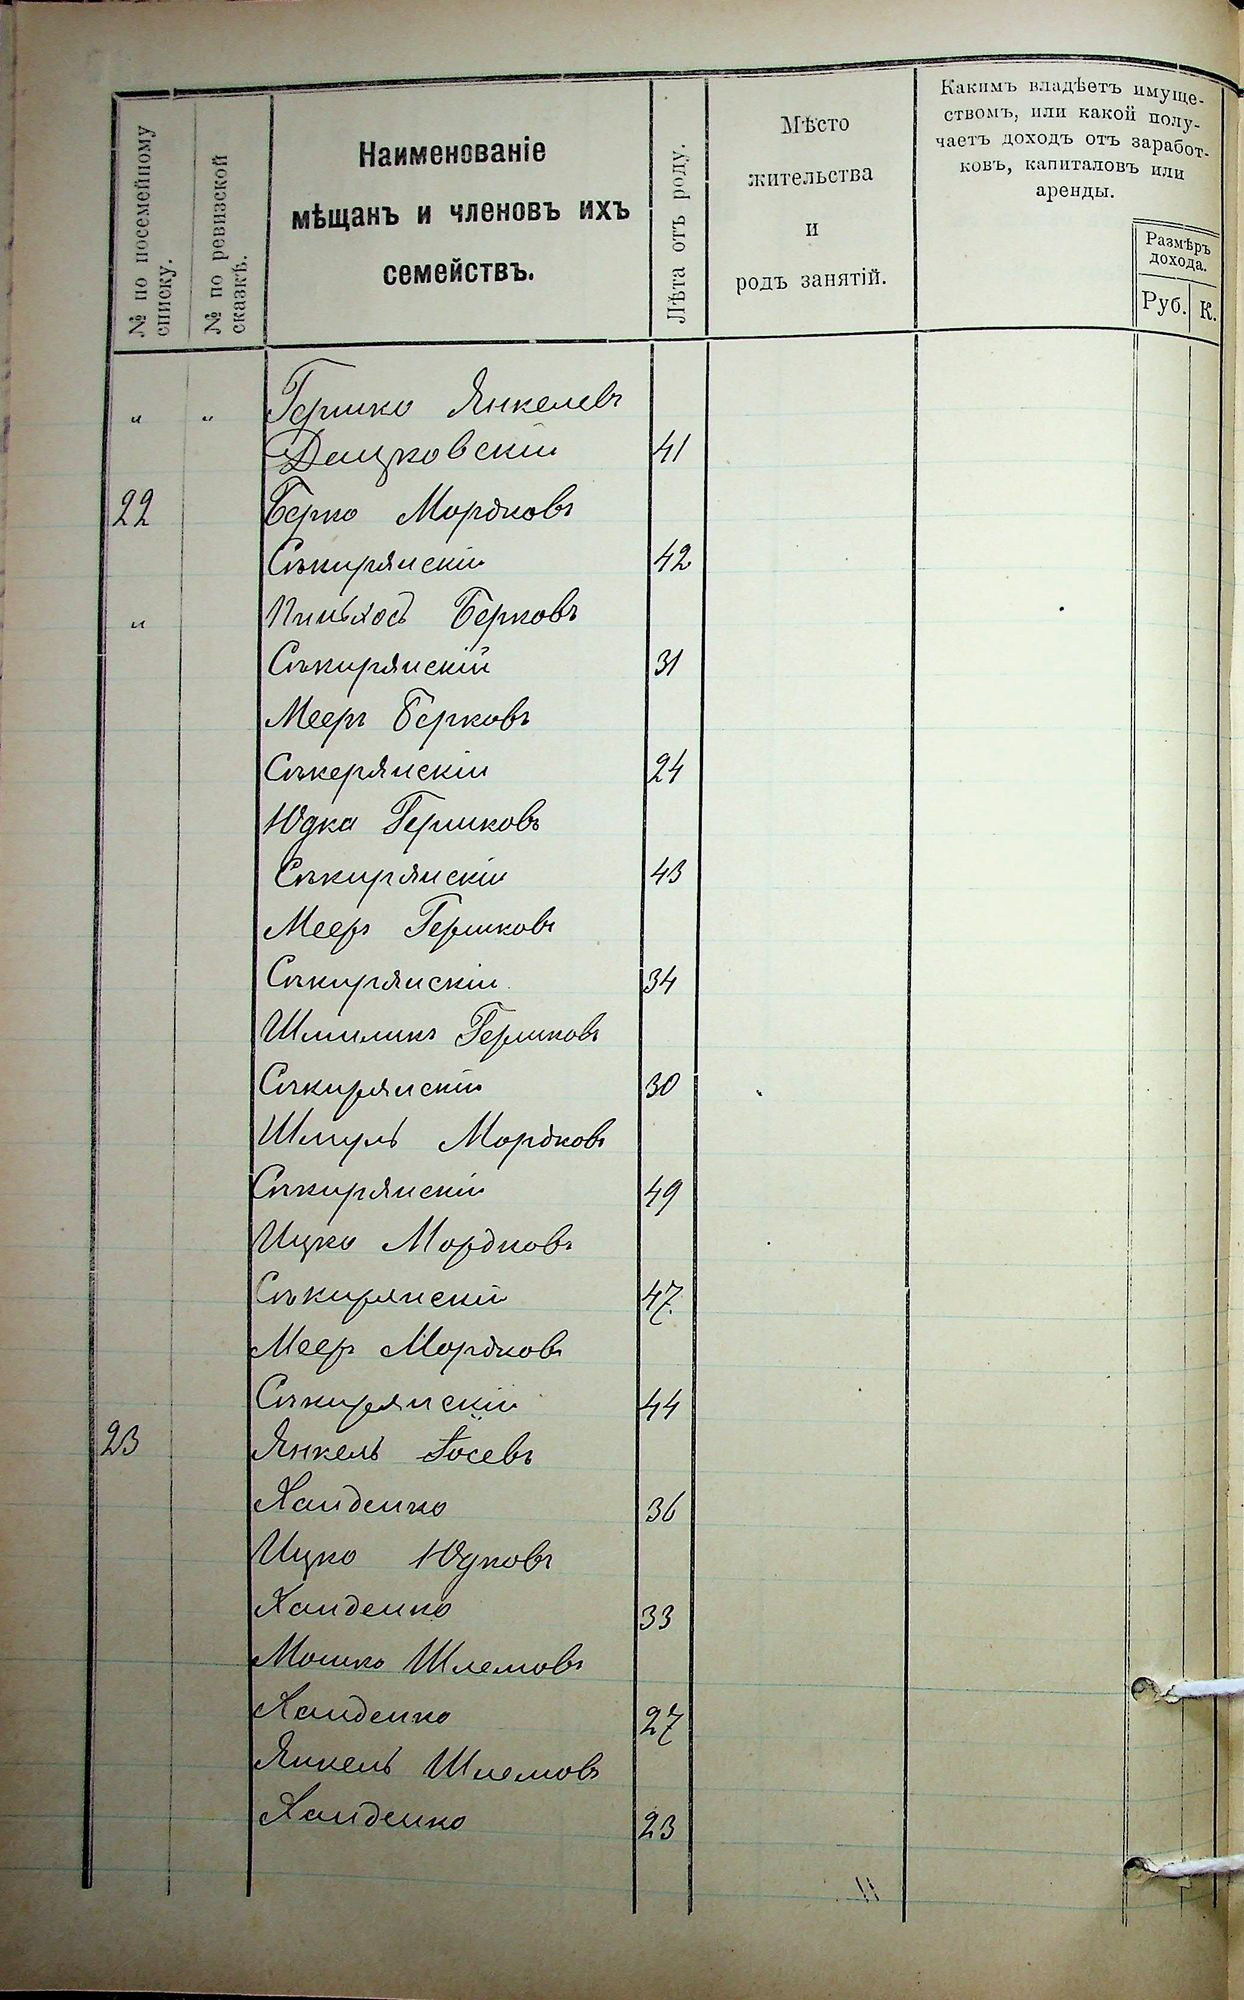 № по посемейному
списку.
№ по ревизской
сказкѣ.
Наименованіе
мѣщанъ и членовъ ихъ
семействъ.
Лѣта отъ роду.
Мѣсто
жительства
и
родъ занятій.
Какимъ владѣетъ имуще-
ствомъ, или какой полу-
чаетъ доходъ отъ заработ-
ковъ, капиталовъ или
аренды.
Размѣръ
дохода.
Руб. К.
„ „ Гершко Янкелевъ
Дацковскій 41
22 Берко Мордковъ
Сѣкирянскій 42
„ Пиньхос Берковъ
Сѣкирянскій 31
Мееръ Берковъ
Сѣкерянскій 24
Юдка Гершковъ
Сѣкирянскій 43
Мееръ Гершковъ
Сѣкирянскій 34
Шмиликъ Гершковъ
Сѣкирянскій 30
Шмуль Мордковъ
Сѣкирянскій 49
Ицко Мордковъ
Сѣкирянскій 47
Мееръ Мордковъ
Сѣкирянскій 44
23 Янкель Іосевъ
Хайденко 36
Ицко Юдковъ
Хайденко 33
Мошко Шлемовъ
Хайденко 27
Янкель Шлемовъ
Хайденко 23